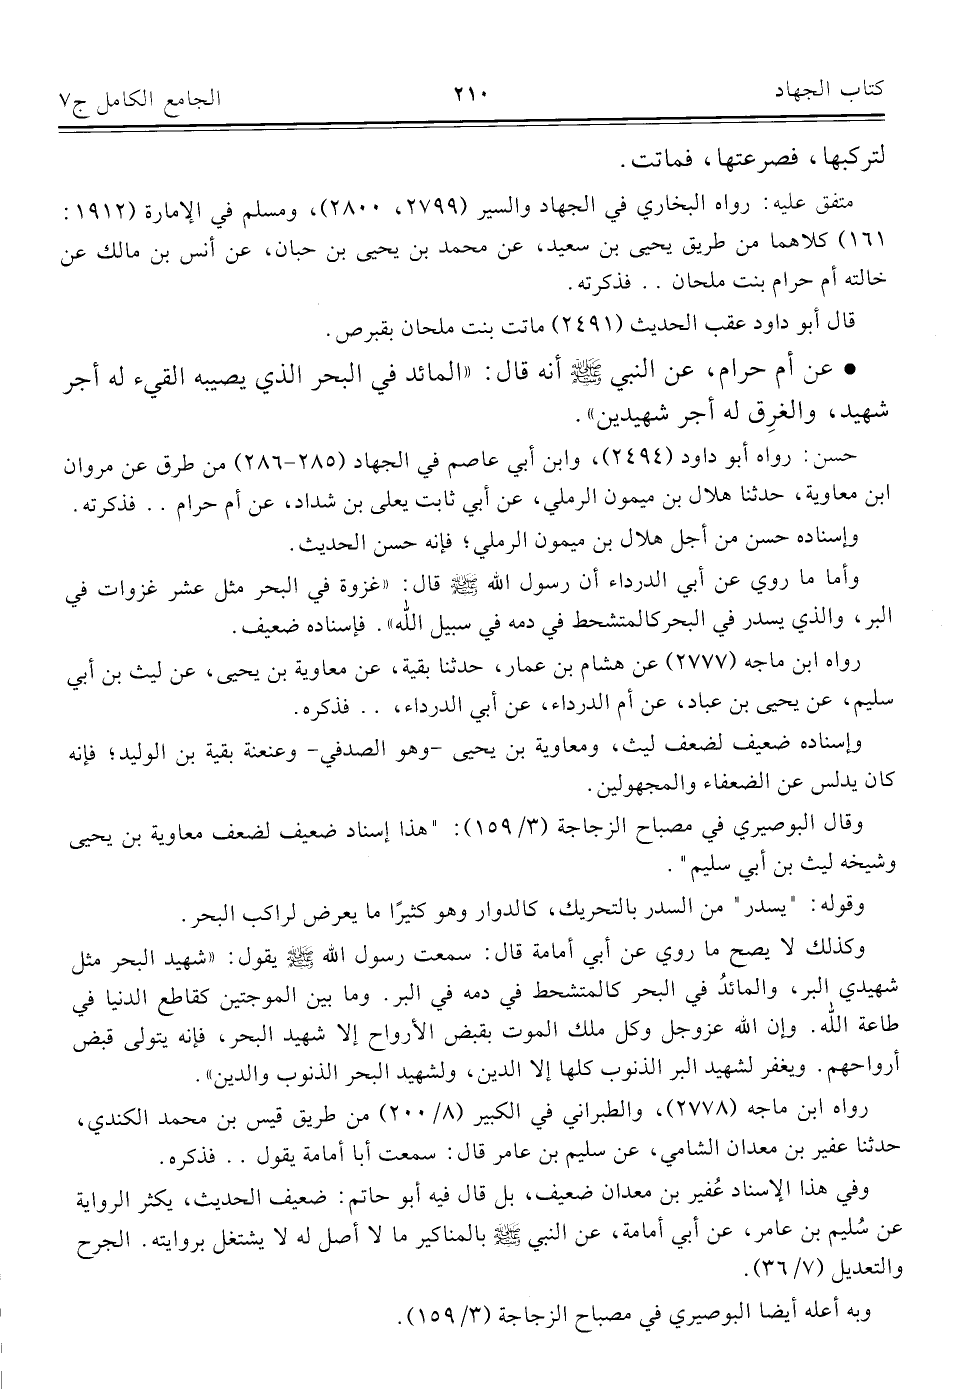 كتاب الجهاد ٢١٠ الجامع الكامل ج٧
لتركبها، فصرعتها، فماتت.
متفق عليه: رواه البخاري في الجهاد والسير (٢٧٩٩، ٢٨٠٠)، ومسلم في الإمارة (١٩١٢:
١٦١) كلاهما من طريق يحيى بن سعيد، عن محمد بن يحيى بن حبان، عن أنس بن مالك عن
خالته أم حرام بنت ملحان .. فذكرته.
قال أبو داود عقب الحديث (٢٤٩١) ماتت بنت ملحان بقبرص.
• عن أم حرام، عن النبي ﷺ أنه قال: «المائد في البحر الذي يصيبه القيء له أجر
شهيد، والغرِق له أجر شهيدين».
حسن: رواه أبو داود (٢٤٩٤)، وابن أبي عاصم في الجهاد (٢٨٥-٢٨٦) من طرق عن مروان
ابن معاوية، حدثنا هلال بن ميمون الرملي، عن أبي ثابت يعلى بن شداد، عن أم حرام .. فذكرته.
وإسناده حسن من أجل هلال بن ميمون الرملي؛ فإنه حسن الحديث.
وأما ما روي عن أبي الدرداء أن رسول الله ﷺ قال: «غزوة في البحر مثل عشر غزوات في
البر، والذي يسدر في البحر كالمتشحط في دمه في سبيل الله». فإسناده ضعيف.
رواه ابن ماجه (٢٧٧٧) عن هشام بن عمار، حدثنا بقية، عن معاوية بن يحيى، عن ليث بن أبي
سليم، عن يحيى بن عباد، عن أم الدرداء، عن أبي الدرداء، .. فذكره.
وإسناده ضعيف لضعف ليث، ومعاوية بن يحيى -وهو الصدفي- وعنعنة بقية بن الوليد؛ فإنه
كان يدلس عن الضعفاء والمجهولين.
وقال البوصيري في مصباح الزجاجة (٣/ ١٥٩): "هذا إسناد ضعيف لضعف معاوية بن يحيى
وشيخه ليث بن أبي سليم".
وقوله: "يسدر" من السدر بالتحريك، كالدوار وهو كثيرًا ما يعرض لراكب البحر.
وكذلك لا يصح ما روي عن أبي أمامة قال: سمعت رسول الله ﷺ يقول: «شهيد البحر مثل
شهيدي البر، والمائدُ في البحر كالمتشحط في دمه في البر. وما بين الموجتين كقاطع الدنيا في
طاعة الله. وإن الله عزوجل وكل ملك الموت بقبض الأرواح إلا شهيد البحر، فإنه يتولى قبض
أرواحهم. ويغفر لشهيد البر الذنوب كلها إلا الدين، ولشهيد البحر الذنوب والدين».
رواه ابن ماجه (٢٧٧٨)، والطبراني في الكبير (٨/ ٢٠٠) من طريق قيس بن محمد الكندي،
حدثنا عفير بن معدان الشامي، عن سليم بن عامر قال: سمعت أبا أمامة يقول .. فذكره.
وفي هذا الإسناد عُفير بن معدان ضعيف، بل قال فيه أبو حاتم: ضعيف الحديث، يكثر الرواية
عن سُليم بن عامر، عن أبي أمامة، عن النبي ﷺ بالمناكير ما لا أصل له لا يشتغل بروايته. الجرح
والتعديل (٧/ ٣٦).
وبه أعله أيضا البوصيري في مصباح الزجاجة (٣/ ١٥٩).